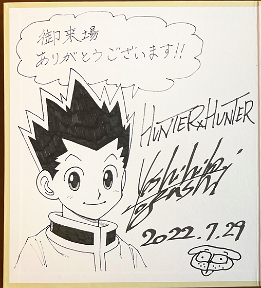 御来場
ありがとうございます!!
HUNTER×HUNTER
Yoshihiro
Togashi
2022.7.29